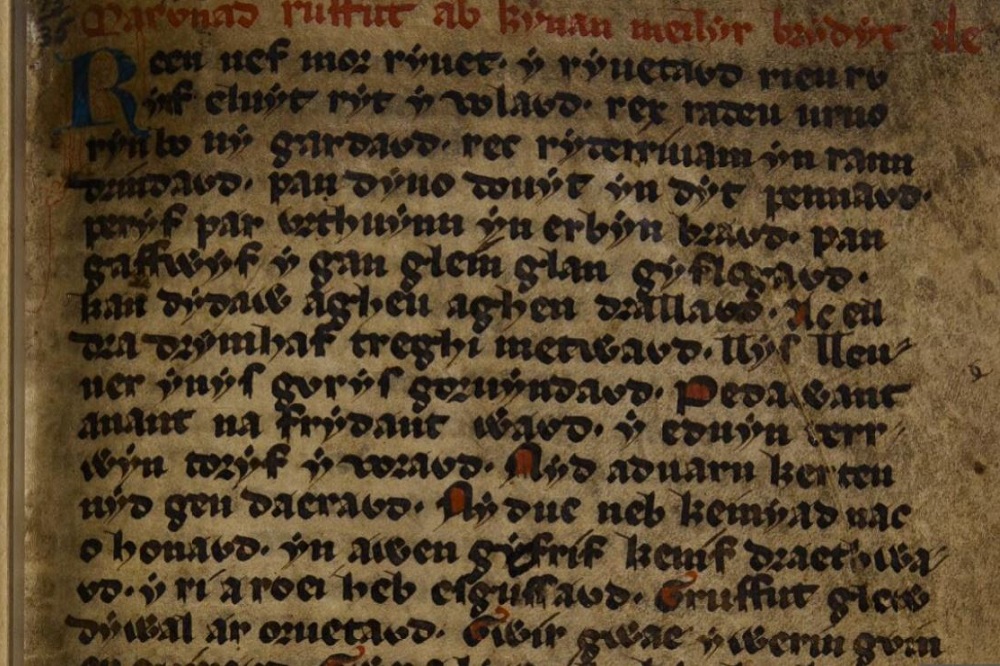 Marvnad ruffut ab kynan meilyr brydyt ae
Reen nef mor ryuet. y ryuetavd rieu ro
yſſ eluyt ryt y volavd. rex radeu urno
ryn bo ny gardavd. rec ryterruiam yn rann
drindavd. pan dyuo douyt yn dyt pennavd.
peryf par vrthuynn yn erbyn bravd. pan
gaffwyf y gan glein glan gyflogavd.
kan dydaw agheu agheu drallavd. Ac en
dra drymhaf treghi metwavd. llyſ lleu-
uer ynyſ gvryſ goruyndavd. Pedawant
anant na frydant wavd. y eduyn terr-
wyn toryf y voravd. Nyd aduarn kerteu
nyd gen daeravd. Ny duc neb keinyad nac
o honavd. yn awen gyfrif kenif draethwa-
vd. y ri a roei heb eſguſſavd. Gruffut glew
dywal ar oruetavd. Gwir gwae y werin gvin